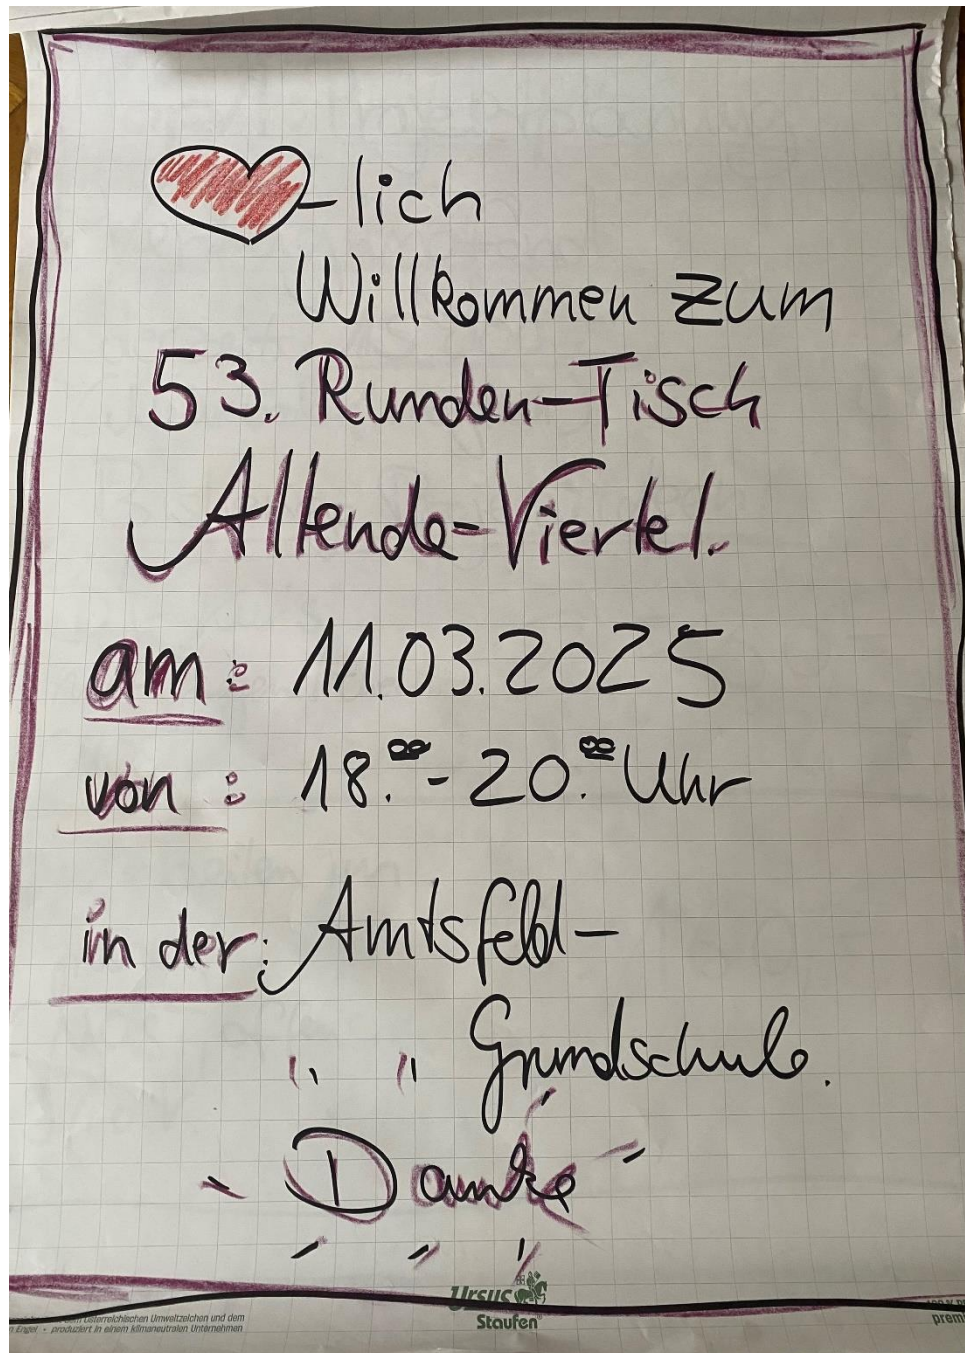 -lich
Willkommen zum
53. Runden-Tisch
Allende-Viertel.
am: 11.03.2025
von: 18.00-20.00 Uhr
in der: Amtsfeld-
" " Grundschule.
Danke
Ursus
Staufen
österreichischen Umweltzeichen und dem
Engel • produziert in einem klimaneutralen Unternehmen
prem